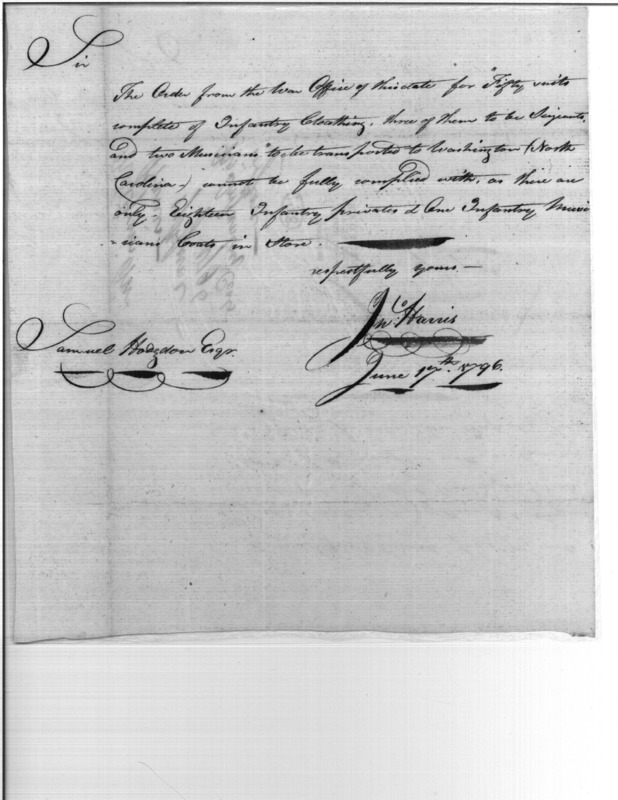 Sir
The Order from the War Office of this date for "Fifty suits
complete of Infantry Cloathing, three of them to be Serjeants,
and two Musicians" to be transported to Washington (North
Carolina) cannot be fully complied with, as there are
only, Eighteen Infantry privates & One Infantry Musi
=cians Coats in Store.
respectfully yours —
Jno. Harris
Samuel Hodgdon Esqr.
June 17th. 1796.